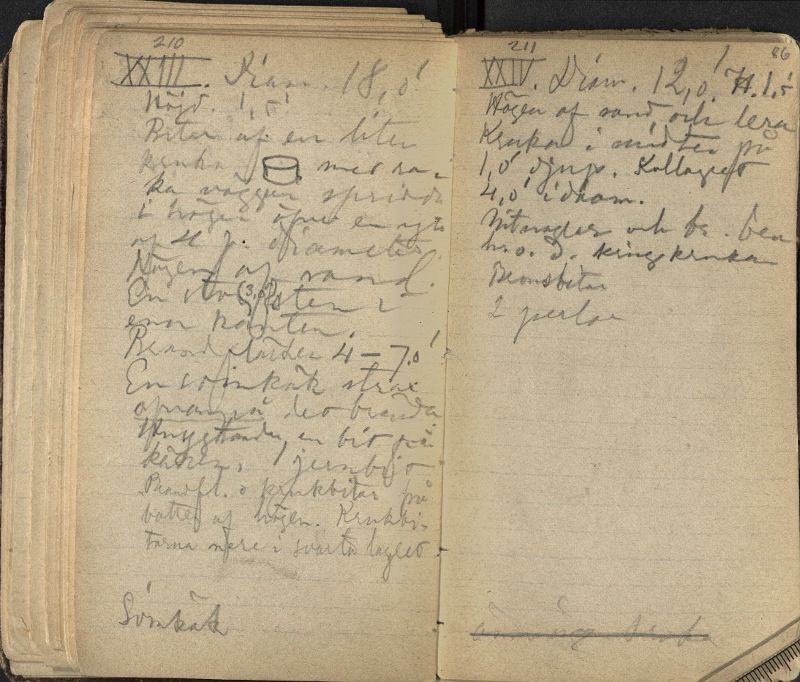 210
XXIII. Diam. 18,0'
Höjd. 1,5'
Bitar af en liten
kruka med ra-
ka väggar spridda
i högen öfver en yta
af 4 f. diameter.
Högen af sand.
En stor (3,0') sten i
ena kanten.
Brandfläcken 4 – 7,0'
En svinkäk strax
ofvanpå det brända
en bit
käken, 1 jernbit
Brandfl. o krukbitar på
botten af högen. Krukbi-
tarna mere i svarta lagret.
Svinkäk
211
86
XXIV. Diam. 12,0' H. 1,5
Högen af sand och lera
Kruka i midten på
1,0' djup. Kollagret
4,0' i diam.
Nitnaglar och br. ben
m. o. d. kring krukan
Bronsbitar
2 perlor